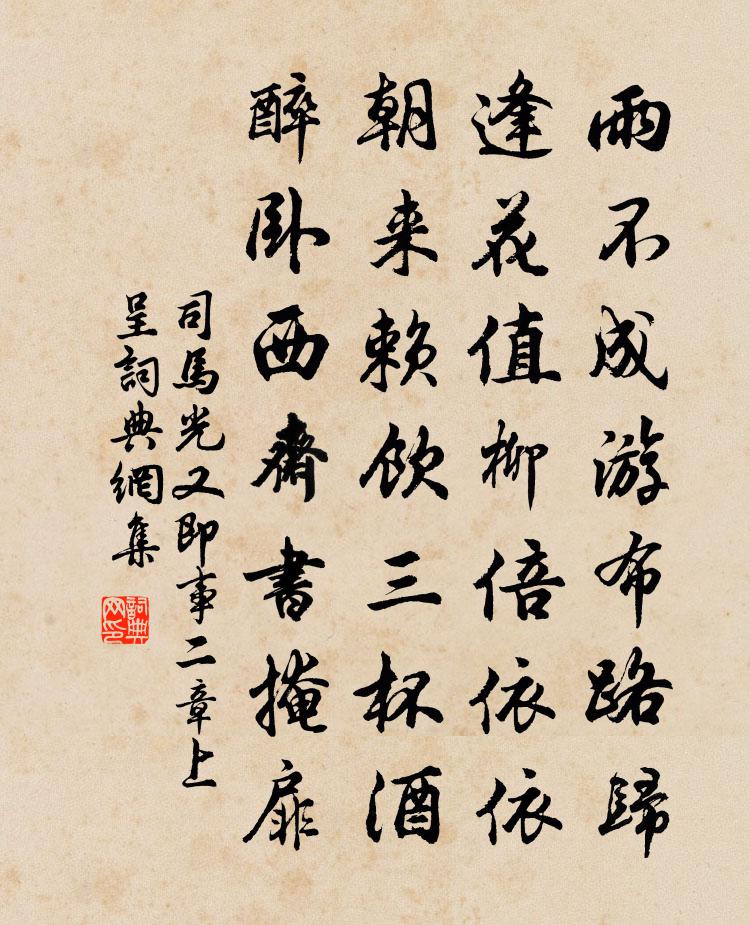 雨不成游布路歸
逢花值柳倍依依
朝来赖飲三杯酒
醉卧西齋書掩扉
司馬光又即事二章上
呈詞典網集
詞典网印